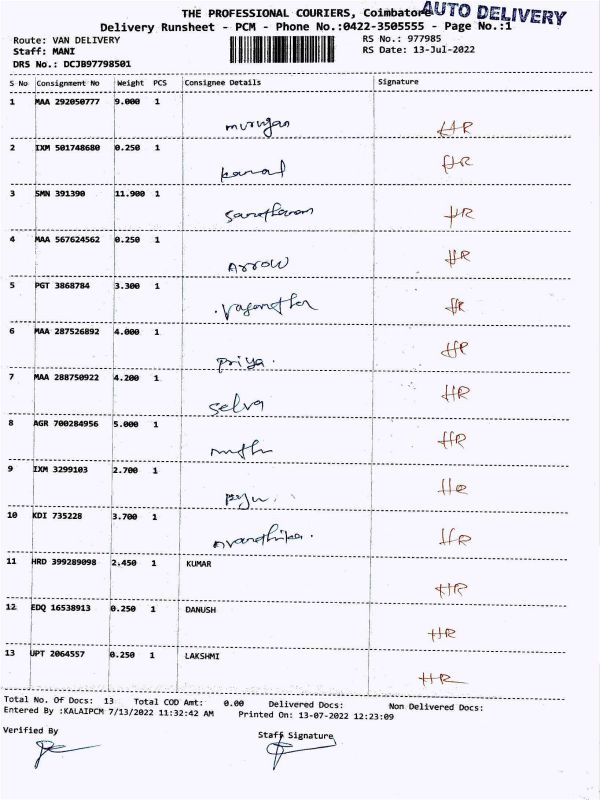 THE PROFESSIONAL COURIERS, Coimbatore
AUTO DELIVERY
Delivery Runsheet - PCM - Phone No.:0422-3505555 - Page No.:1
Route: VAN DELIVERY RS No.: 977985
Staff: MANI RS Date: 13-Jul-2022
DRS No.: DCJB97798501
S No Consignment No Weight PCS Consignee Details Signature
1 MAA 292050777 9.000 1
murugan HR
2 IXM 501748680 0.250 1
kamal HR
3 SMN 391390 11.900 1
HR
4 MAA 567624562 0.250 1
Arrow HR
5 PGT 3868784 3.300 1
HR
6 MAA 287526892 4.000 1
priya. HR
7 MAA 288750922 4.200 1
selva HR
8 AGR 700284956 5.000 1
muthu HR
9 IXM 3299103 2.700 1
HR
10 KDI 735228 3.700 1
Avanthika. HR
11 HRD 399289098 2.450 1 KUMAR
HR
12 EDQ 16538913 0.250 1 DANUSH
HR
13 UPT 2064557 0.250 1 LAKSHMI
HR
Total No. Of Docs: 13 Total COD Amt: 0.00 Delivered Docs: Non Delivered Docs:
Entered By :KALAIPCM 7/13/2022 11:32:42 AM Printed On: 13-07-2022 12:23:09
Verified By Staff Signature